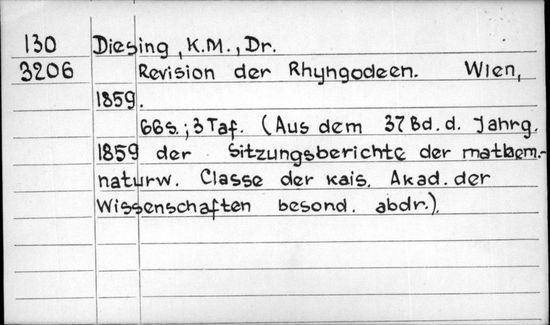 130 Diesing, K.M., Dr.
3206 Revision der Rhyngodeen. Wien,
1859.
66s.; 3 Taf. (Aus dem 37 Bd. d. Jahrg.
1859 der Sitzungsberichte der mathem.-
naturw. Classe der kais. Akad. der
Wissenschaften besond. abdr.).